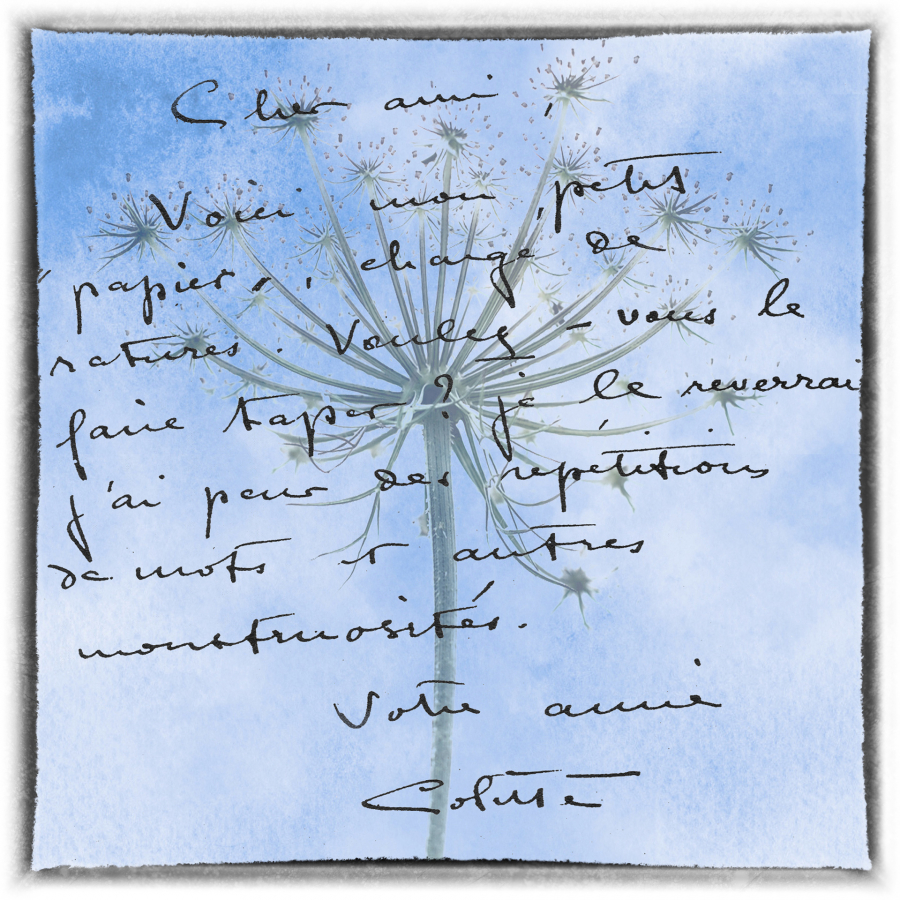 Cher ami,
Voici mon petit
papier, chargé de
ratures. Voulez-vous le
faire taper? je le reverrai
j'ai peur des répétitions
de mots et autres
monstruosités.
Votre amie
Colette